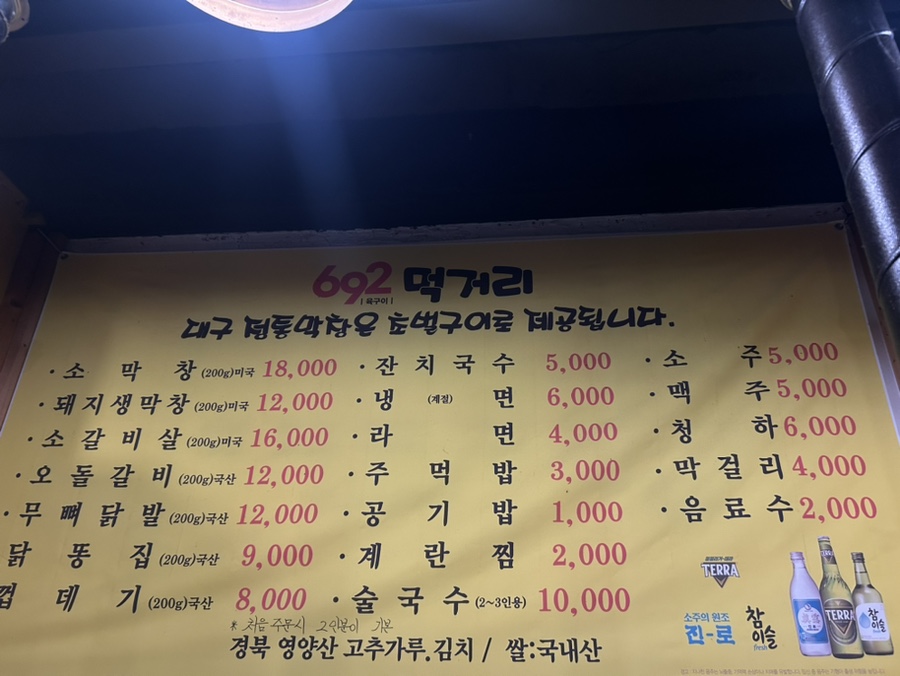 692 먹거리
| 육구이 |
대구 전통막창은 초벌구이로 제공됩니다.
·소 막 창 (200g)미국 18,000 ·잔 치 국 수 5,000 ·소 주 5,000
·돼지생막창 (200g)미국 12,000 ·냉 (계절) 면 6,000 ·맥 주 5,000
·소 갈 비 살 (200g)미국 16,000 ·라 면 4,000 ·청 하 6,000
·오 돌 갈 비 (200g)국산 12,000 ·주 먹 밥 3,000 ·막 걸 리 4,000
·무 뼈 닭 발 (200g)국산 12,000 ·공 기 밥 1,000 ·음 료 수 2,000
닭 똥 집 (200g)국산 9,000 ·계 란 찜 2,000
껍 데 기 (200g)국산 8,000 ·술 국 수 (2~3인용) 10,000
* 처음 주문시 2인분이 기본
경북 영양산 고추가루.김치 / 쌀:국내산
TERRA
소주의 원조
진-로
참이슬
fresh
TERRA
참이슬
fresh